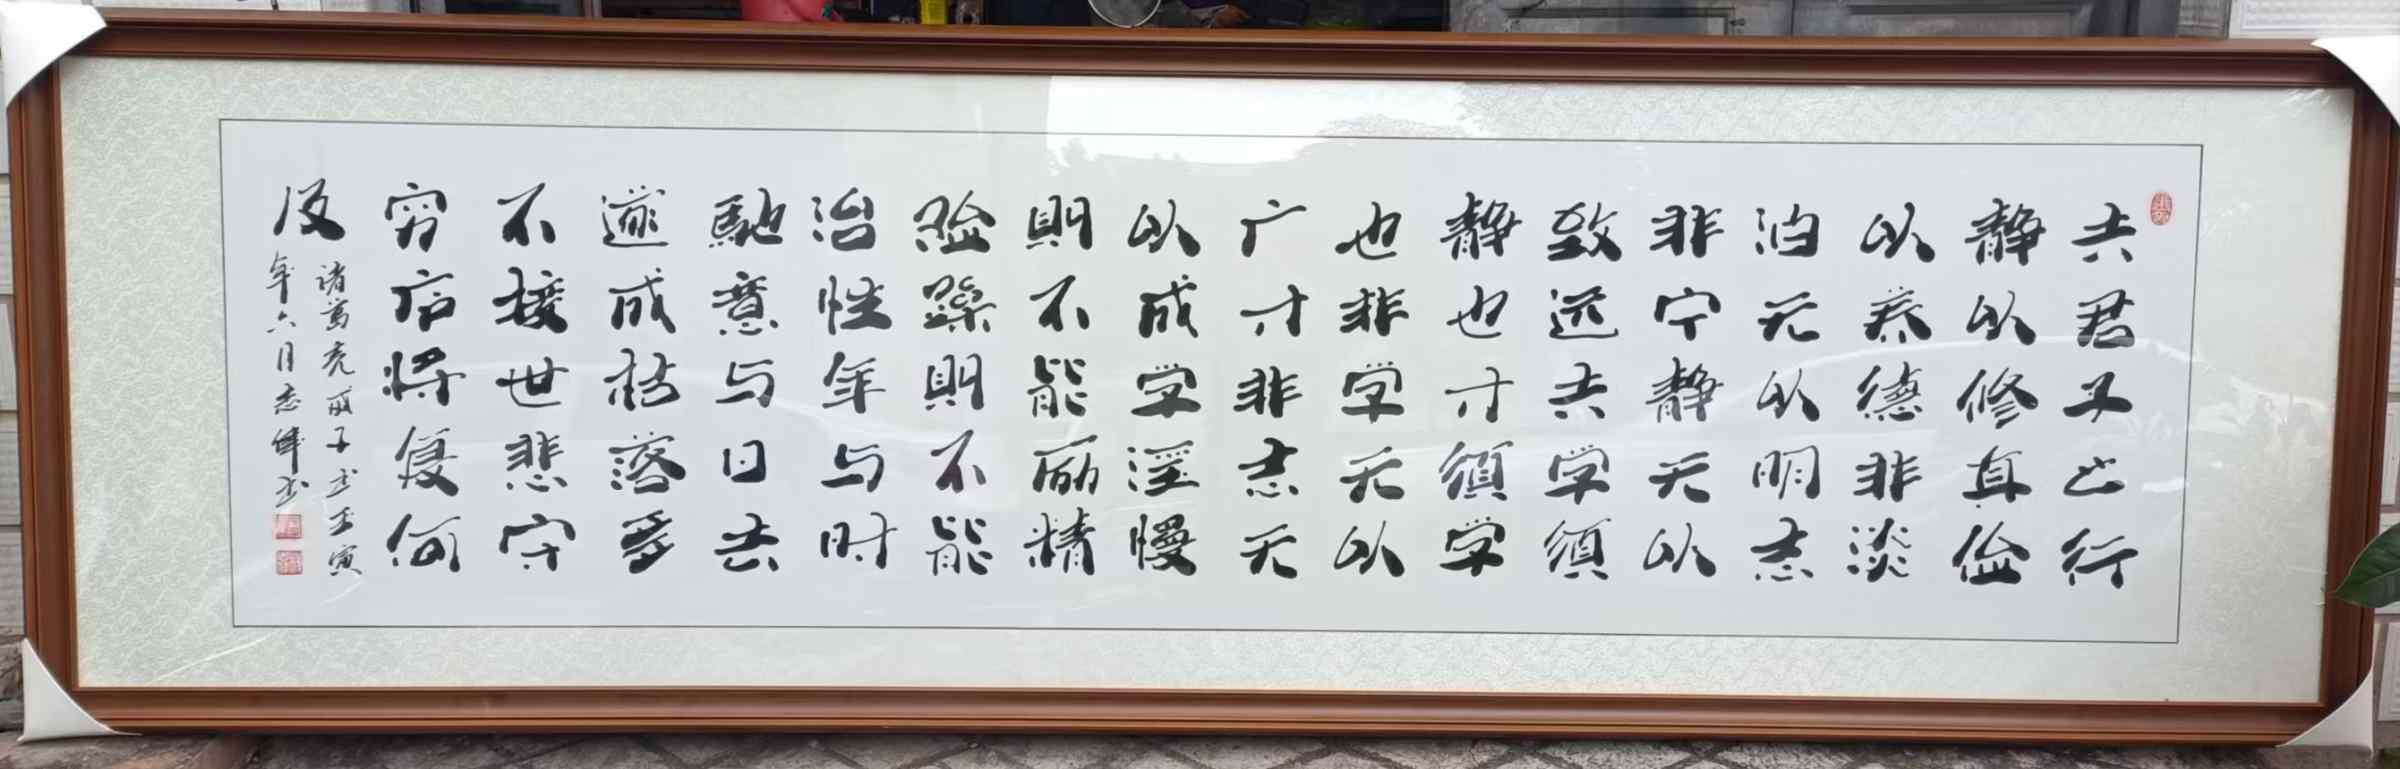 夫君子之行
静以修身俭
以养德非淡
泊无以明志
非宁静无以
致远夫学须
静也才须学
也非学无以
广才非志无
以成学淫慢
則不能励精
险躁則不能
治性年与时
馳意与日去
遂成枯落多
不接世悲守
穷庐将复何
及
诸葛亮诫子书壬寅
年六月志伟书